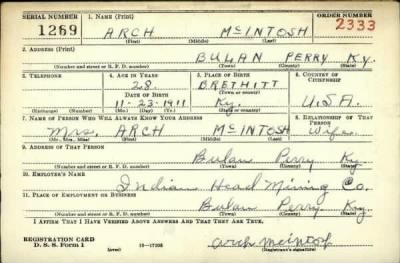 SERIAL NUMBER 1. NAME (Print) ORDER NUMBER
1269 ARCH McINTOSH 2333
(First) (Middle) (Last)
2. ADDRESS (Print)
BULAN PERRY Ky.
(Number and street or R. F. D. number) (Town) (County) (State)
3. TELEPHONE 4. AGE IN YEARS 5. PLACE OF BIRTH 6. COUNTRY OF CITIZENSHIP
28 BRETHITT
DATE OF BIRTH (Town or county)
11-23-1911 Ky. U.S.A.
(Exchange) (Number) (Mo.) (Day) (Yr.) (State or country)
7. NAME OF PERSON WHO WILL ALWAYS KNOW YOUR ADDRESS 8. RELATIONSHIP OF THAT PERSON
Mrs. ARCH McINTOSH Wife
(Mr., Mrs., Miss) (First) (Middle) (Last)
9. ADDRESS OF THAT PERSON
Bulan Perry Ky
(Number and street or R. F. D. number) (Town) (County) (State)
10. EMPLOYER'S NAME
Indian Head Mining Co.
11. PLACE OF EMPLOYMENT OR BUSINESS
Bulan Perry Ky
(Number and street or R. F. D. number) (Town) (County) (State)
I AFFIRM THAT I HAVE VERIFIED ABOVE ANSWERS AND THAT THEY ARE TRUE.
REGISTRATION CARD
D. S. S. Form 1 (over) 16—17105 Arch McIntosh
(Registrant's signature)